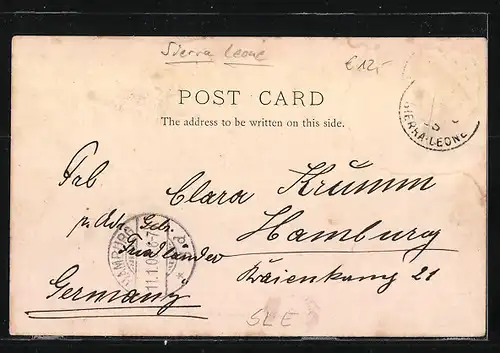 Sierra Leone
€12,-
POST CARD
The address to be written on this side.
SIERRA-LEONE
Frl. Clara Krumm
p. Adr. Gebr.
Friedländer
Hamburg
HAMBURG
11.1.0
Kraienkamp 21
Germany
SLE